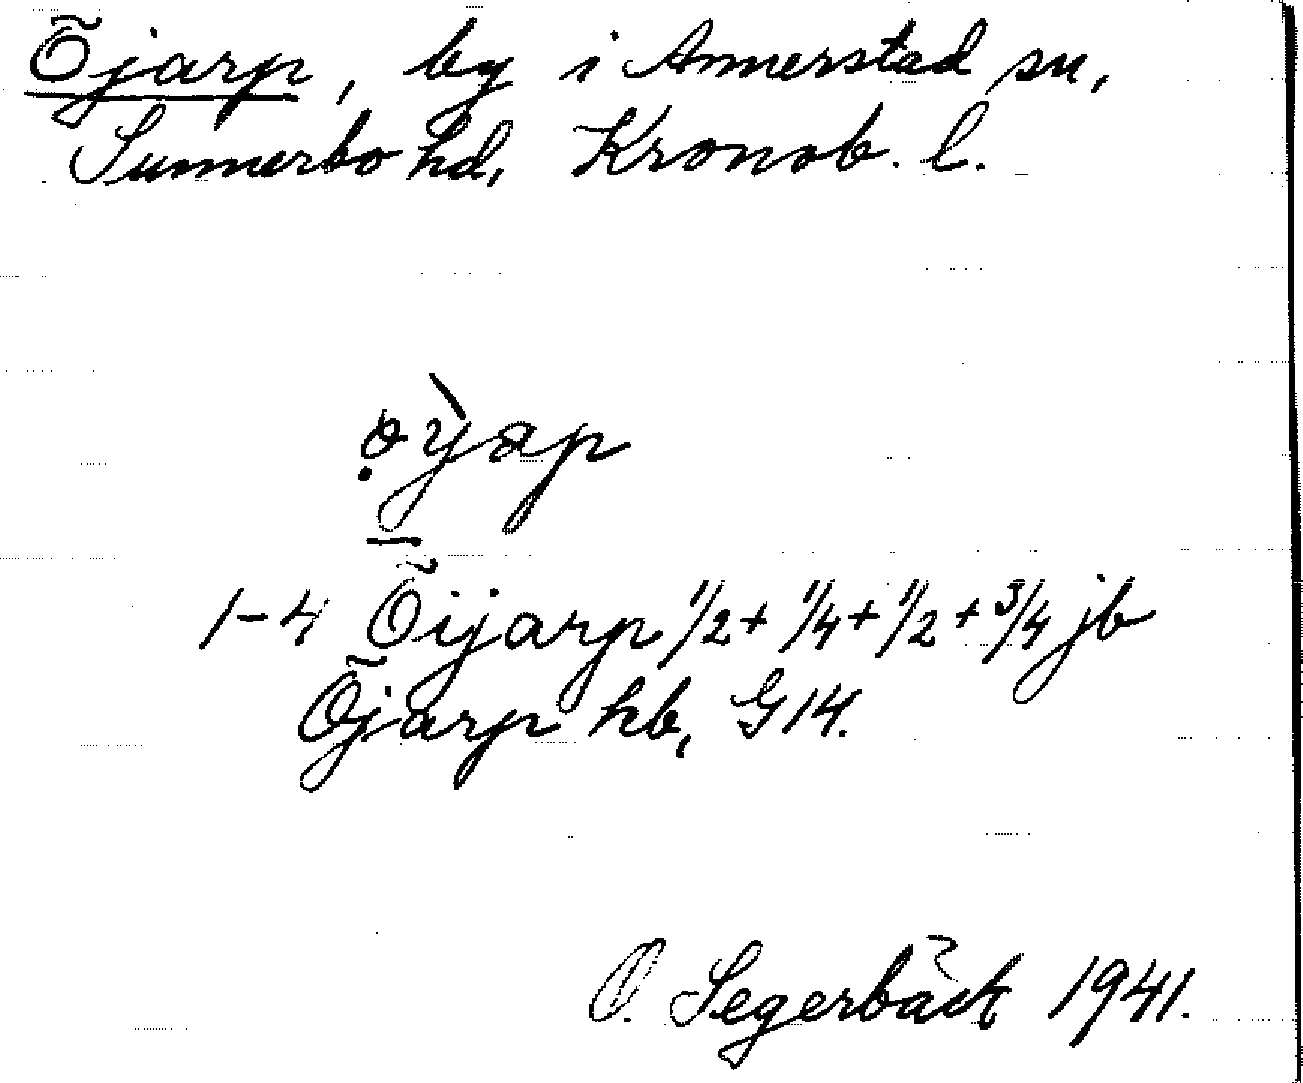 Öjarp, by i Annerstad sn,
Sunnerbo hd, Kronob. l.
ø̣̀yap
1-4 Öijarp 1/2 + 1/4 + 1/2 + 3/4 jb
Öjarp hb, G14.
O. Segerbäck 1941.